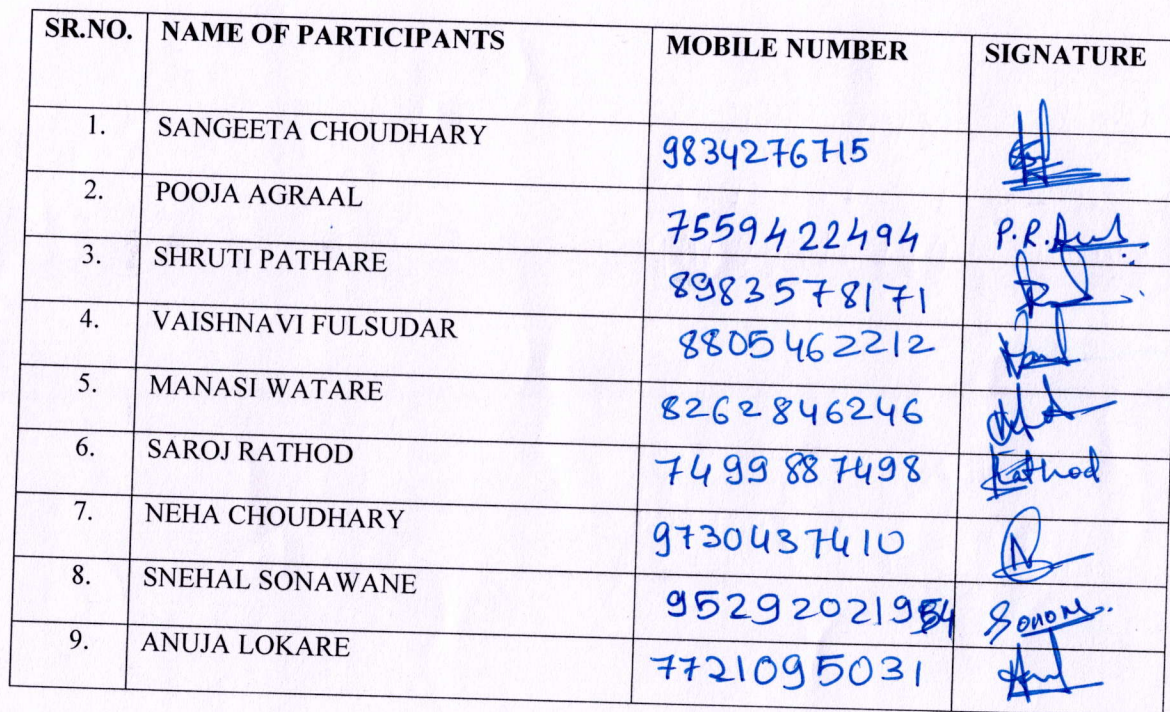 SR.NO. NAME OF PARTICIPANTS MOBILE NUMBER SIGNATURE
1. SANGEETA CHOUDHARY 9834276715
2. POOJA AGRAAL 7559422494 P.R.
3. SHRUTI PATHARE 8983578171
4. VAISHNAVI FULSUDAR 8805462212
5. MANASI WATARE 8262846246
6. SAROJ RATHOD 7499887498 Rathod
7. NEHA CHOUDHARY 9730437410
8. SNEHAL SONAWANE
9. ANUJA LOKARE 7721095031